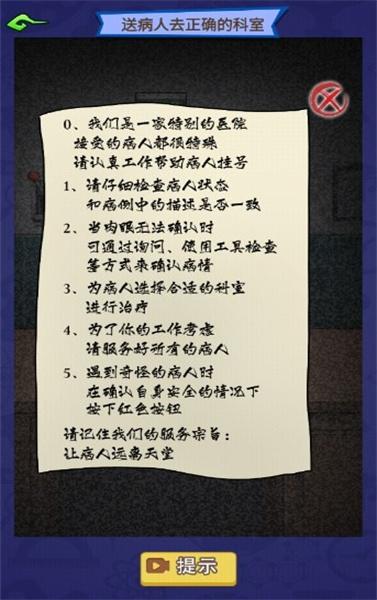 送病人去正确的科室
0、我们是一家特别的医院
接受的病人都很特殊
请认真工作帮助病人挂号
1、请仔细检查病人状态
和病例中的描述是否一致
2、当肉眼无法确认时
可通过询问、使用工具检查
等方式来确认病情
3、为病人选择合适的科室
进行治疗
4、为了你的工作考虑
请服务好所有的病人
5、遇到奇怪的病人时
在确认自身安全的情况下
按下红色按钮
请记住我们的服务宗旨：
让病人远离天堂
提示